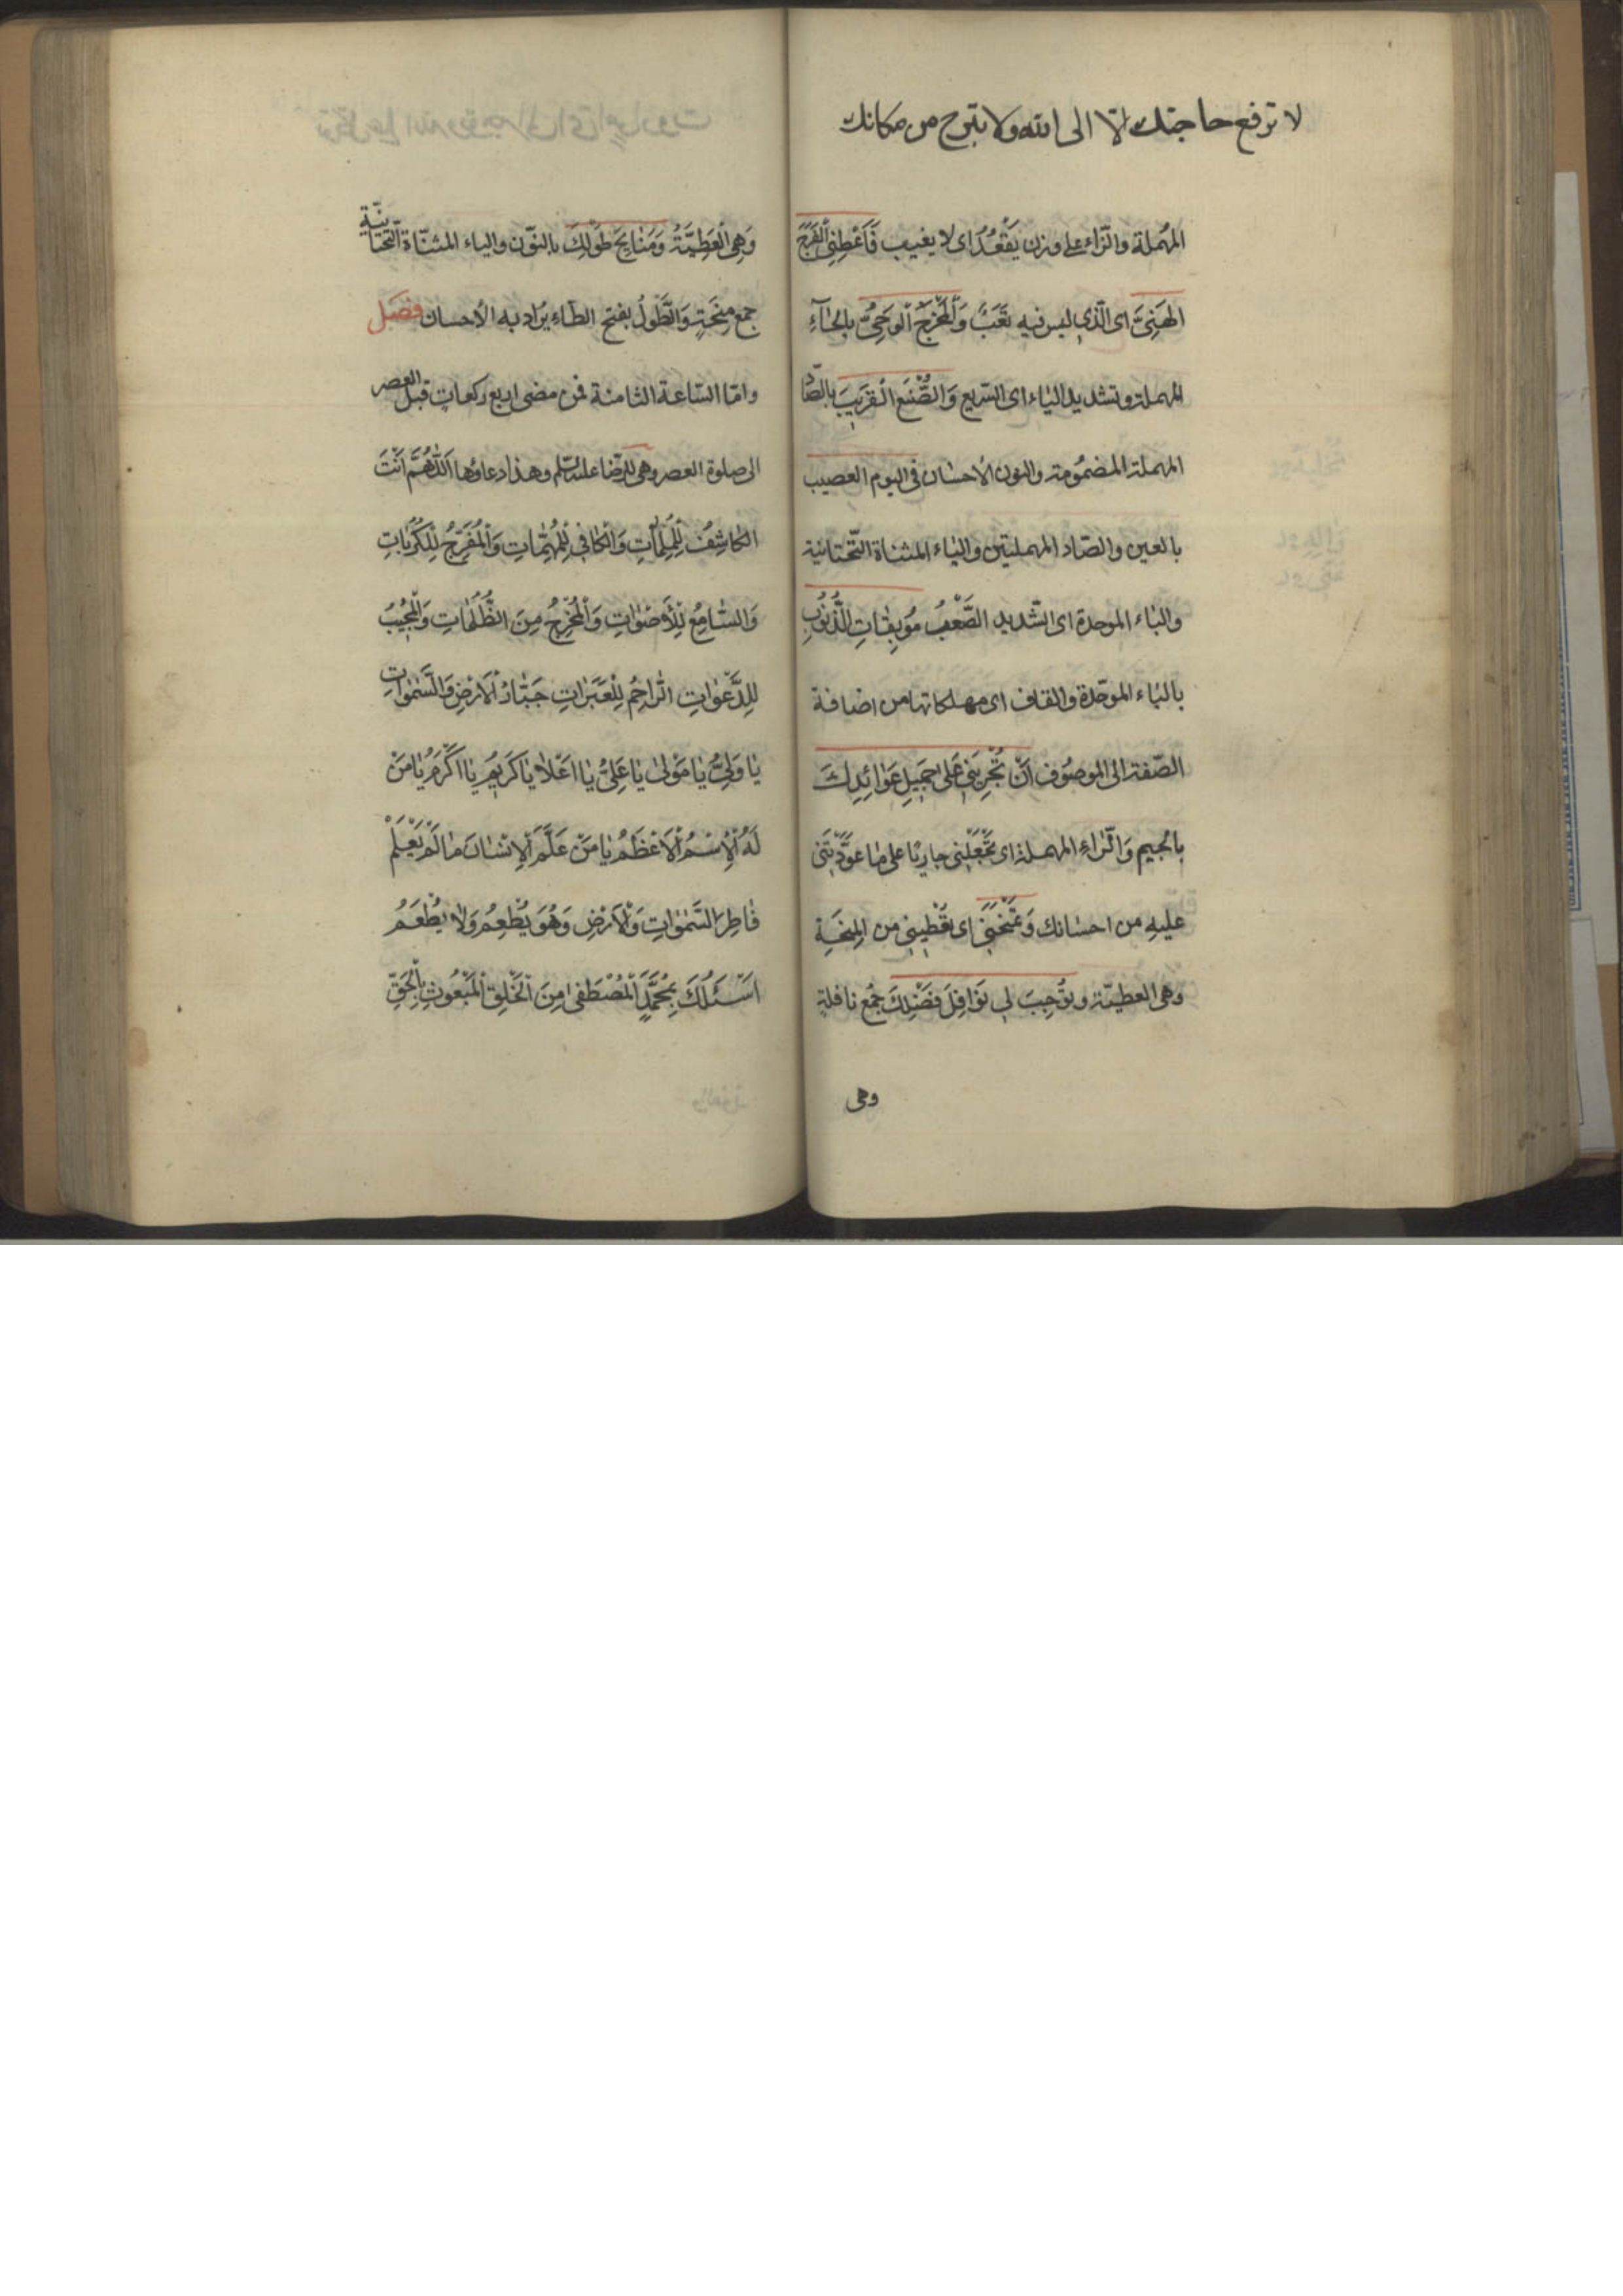 لا ترفع حاجتك الّا الى الله ولا تبرح من مكانك
المهملة والزّاء على وزن يَقْعُدُ اى لا يغيب فَاَعْطِنِى الْفَرَجَ
الهَنِىَّ اى الّذى ليس فيه تَعَبٌ وَالْمَخْرَجَ الْوَحِىَّ بالحَآءِ
المهملة وتشديد اليٰاء اى السّريع وَالصُّنْعَ الْقَرِيبَ بالصّاد
المهملة المضمُومة والنون الأحسٰان فى اليوم العصيب
بالعين والصّاد المهملتين واليٰاء المثناة التّحتانية
والبٰاء الموحدة اى الشّديد الصَّعْبُ مُوبِقٰاتِ الذُّنُوبِ
بالبٰاء الموحّدة والقاف اى مهلكاتها من اضافة
الصّفة الى الموصُوف اَنْ تُجْرِيَنِى عَلىٰ جَمِيلِ عَوٰائِدِكَ
بالجيم وَالرّٰاءِ المهملة اى تَجْعَلَنِى جاريًا على مٰا عوّدْتَنى
عليهِ من احسٰانك وَتَمْنَحَنِى اى تعْطِينِى من المِنْحَةِ
وهى العطيّة وتُوجِبَ لى نَوٰافِلَ فَضْلِكَ جمْع نافلةٍ
وهى
وَهِىَ الْعَطِيَّةُ وَمَنٰايِحَ طَوْلِكَ بالنوّن والياء المثنّاة التّحتانيّة
جمع مِنْحَةٍ وَالطَّوْلُ بفتح الطّاءِ يُرادبه الأحسان فصَل
وامّا السّاعة الثامنة فمن مضى اربع ركعات قبل العصر
الى صلوة العصر وهى للرّضا عليه السّلم وهذا دعاؤها اَللّٰهُمَّ اَنْتَ
الكٰاشِفُ لِلْمُلِمّٰاتِ وَالْكٰافِى لِلْمُهِمّٰاتِ وَالْمُفَرِّجُ لِلْكُرُبٰاتِ
وَالسّٰامِعُ لِلْأَصْوٰاتِ وَالْمُخْرِجُ مِنَ الظُّلُمٰاتِ وَالْمُجِيبُ
لِلدَّعَوٰاتِ الرّٰاحِمُ لِلْعَبَرٰاتِ جَبّٰارُ الْاَرْضِ وَالسَّمٰوٰاتِ
يٰا وَلِىُّ يٰا مَوْلىٰ يٰا عَلِىُّ يٰا اَعْلاٰ يٰا كَرِيمُ يٰا اَكْرَمُ يٰا مَنْ
لَهُ الْاِسْمُ الْاَعْظَمُ يٰا مَنْ عَلَّمَ الْاِنْسٰانَ مٰا لَمْ يَعْلَمْ
فٰاطِرَ السَّمٰوٰاتِ وَالْاَرْضِ وَهُوَ يُطْعِمُ وَلاٰ يُطْعَمُ
اَسْئَلُكَ بِمُحَمَّدٍ الْمُصْطَفىٰ مِنَ الْخَلْقِ الْمَبْعُوثِ بِالْحَقِّ